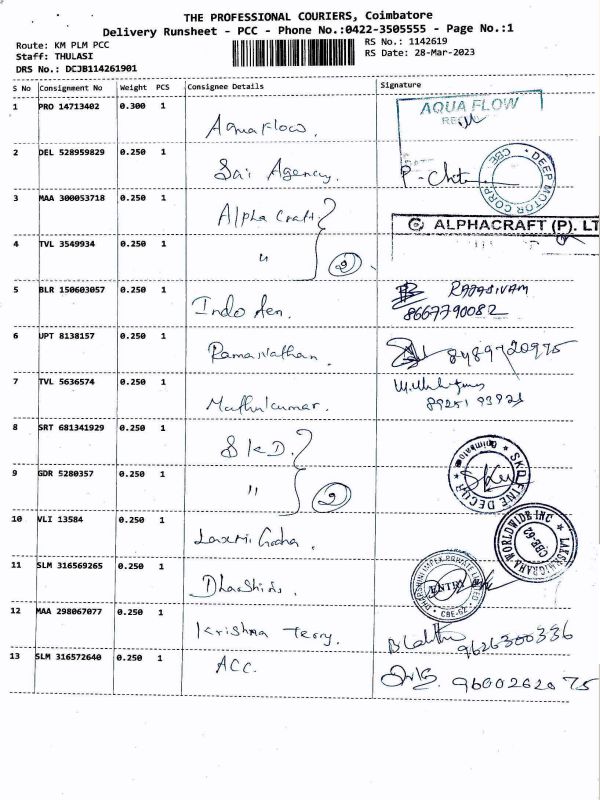 THE PROFESSIONAL COURIERS, Coimbatore
Delivery Runsheet - PCC - Phone No.:0422-3505555 - Page No.:1
Route: KM PLM PCC
RS No.: 1142619
Staff: THULASI
RS Date: 28-Mar-2023
DRS No.: DCJB114261901
S No Consignment No Weight PCS Consignee Details Signature
1 PRO 14713402 0.300 1 Aquaflow. AQUA FLOW
2 DEL 528959829 0.250 1 Sai Agency. DEEP MOTOR CORP CBE
3 MAA 300053718 0.250 1 Alpha Craft. ALPHACRAFT (P). LT
4 TVL 3549934 0.250 1 " 2
5 BLR 150603057 0.250 1 Indo RAJASIVAM
8667790082
6 UPT 8138157 0.250 1 Ramanathan. 8489720975
7 TVL 5636574 0.250 1 Muthukumar.
8 SRT 681341929 0.250 1 SKD.
9 GDR 5280357 0.250 1 " 2 Coimbatore
10 VLI 13584 0.250 1 WORLDWIDE INC CBE-62
11 SLM 316569265 0.250 1 Dharshini. ENTRY CBE-62
12 MAA 298067077 0.250 1 Krishna Terry. 9626300336
13 SLM 316572640 0.250 1 ACC. 9600262075